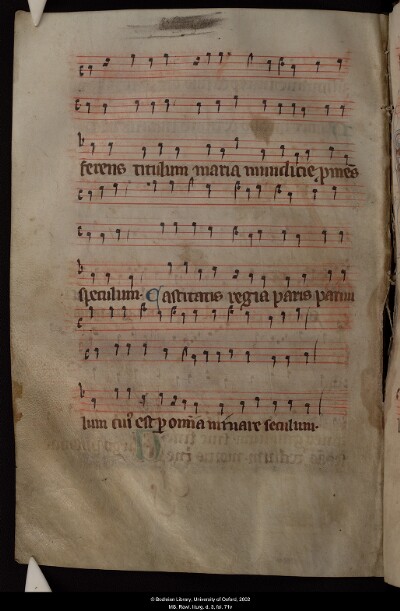 ferens titulum maria mundicie
speculum. Castitatis regia paris paruu
lum cui est omnia seculum.
© Bodleian Library, University of Oxford, 2002
MS. Rawl. liturg. d. 3, fol. 71v